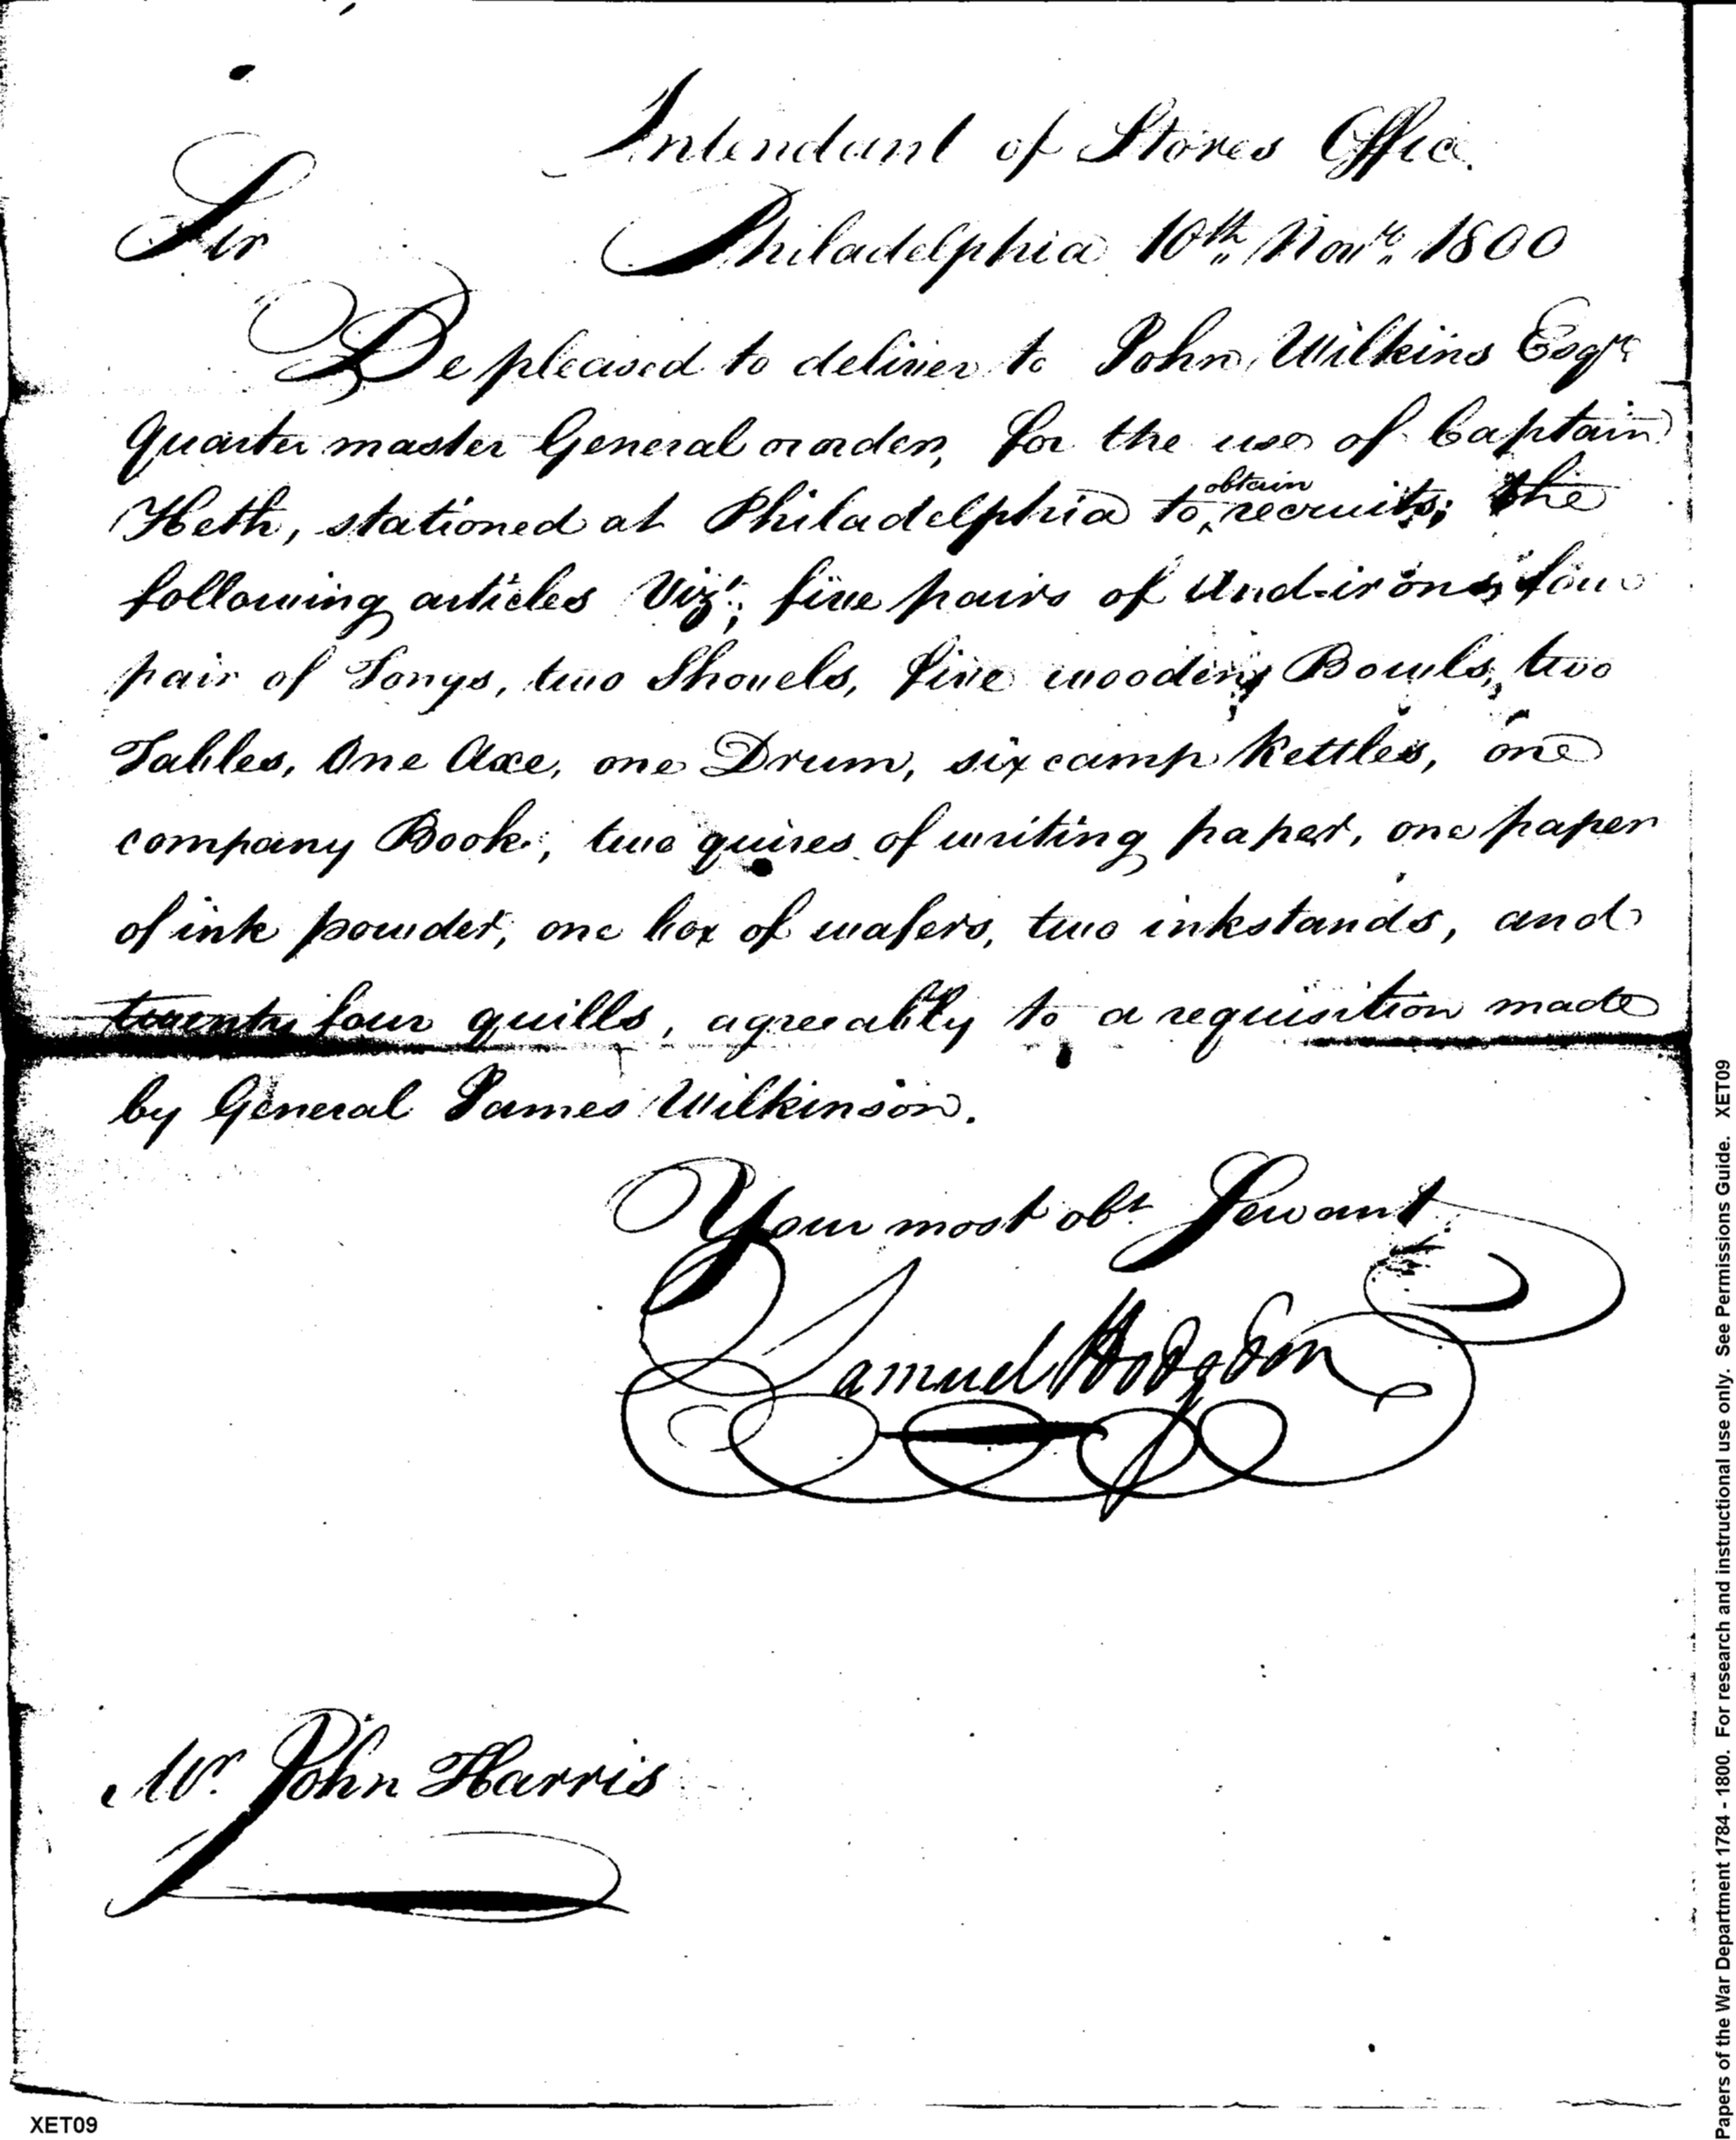 Intendant of Stores Office.
Sir Philadelphia 10th Novr. 1800
Be pleased to deliver to John Wilkins Esqr
Quarter master General or order, for the use of Captain
Heth, stationed at Philadelphia to obtain recruits; the
following articles Vizt; five pairs of And-irons, four
pair of Tongs, two Shovels, five wooden Bowls, two
Tables, One Axe, one Drum, six camp Kettles, one
company Book, two quires of writing paper, one paper
of ink powder, one box of wafers, two inkstands, and
twenty four quills, agreeably to a requisition made
by General James Wilkinson.
Your most obt Servant
Samuel Hodgdon
Mr. John Harris
XET09
Papers of the War Department 1784 - 1800. For research and instructional use only. See Permissions Guide. XET09